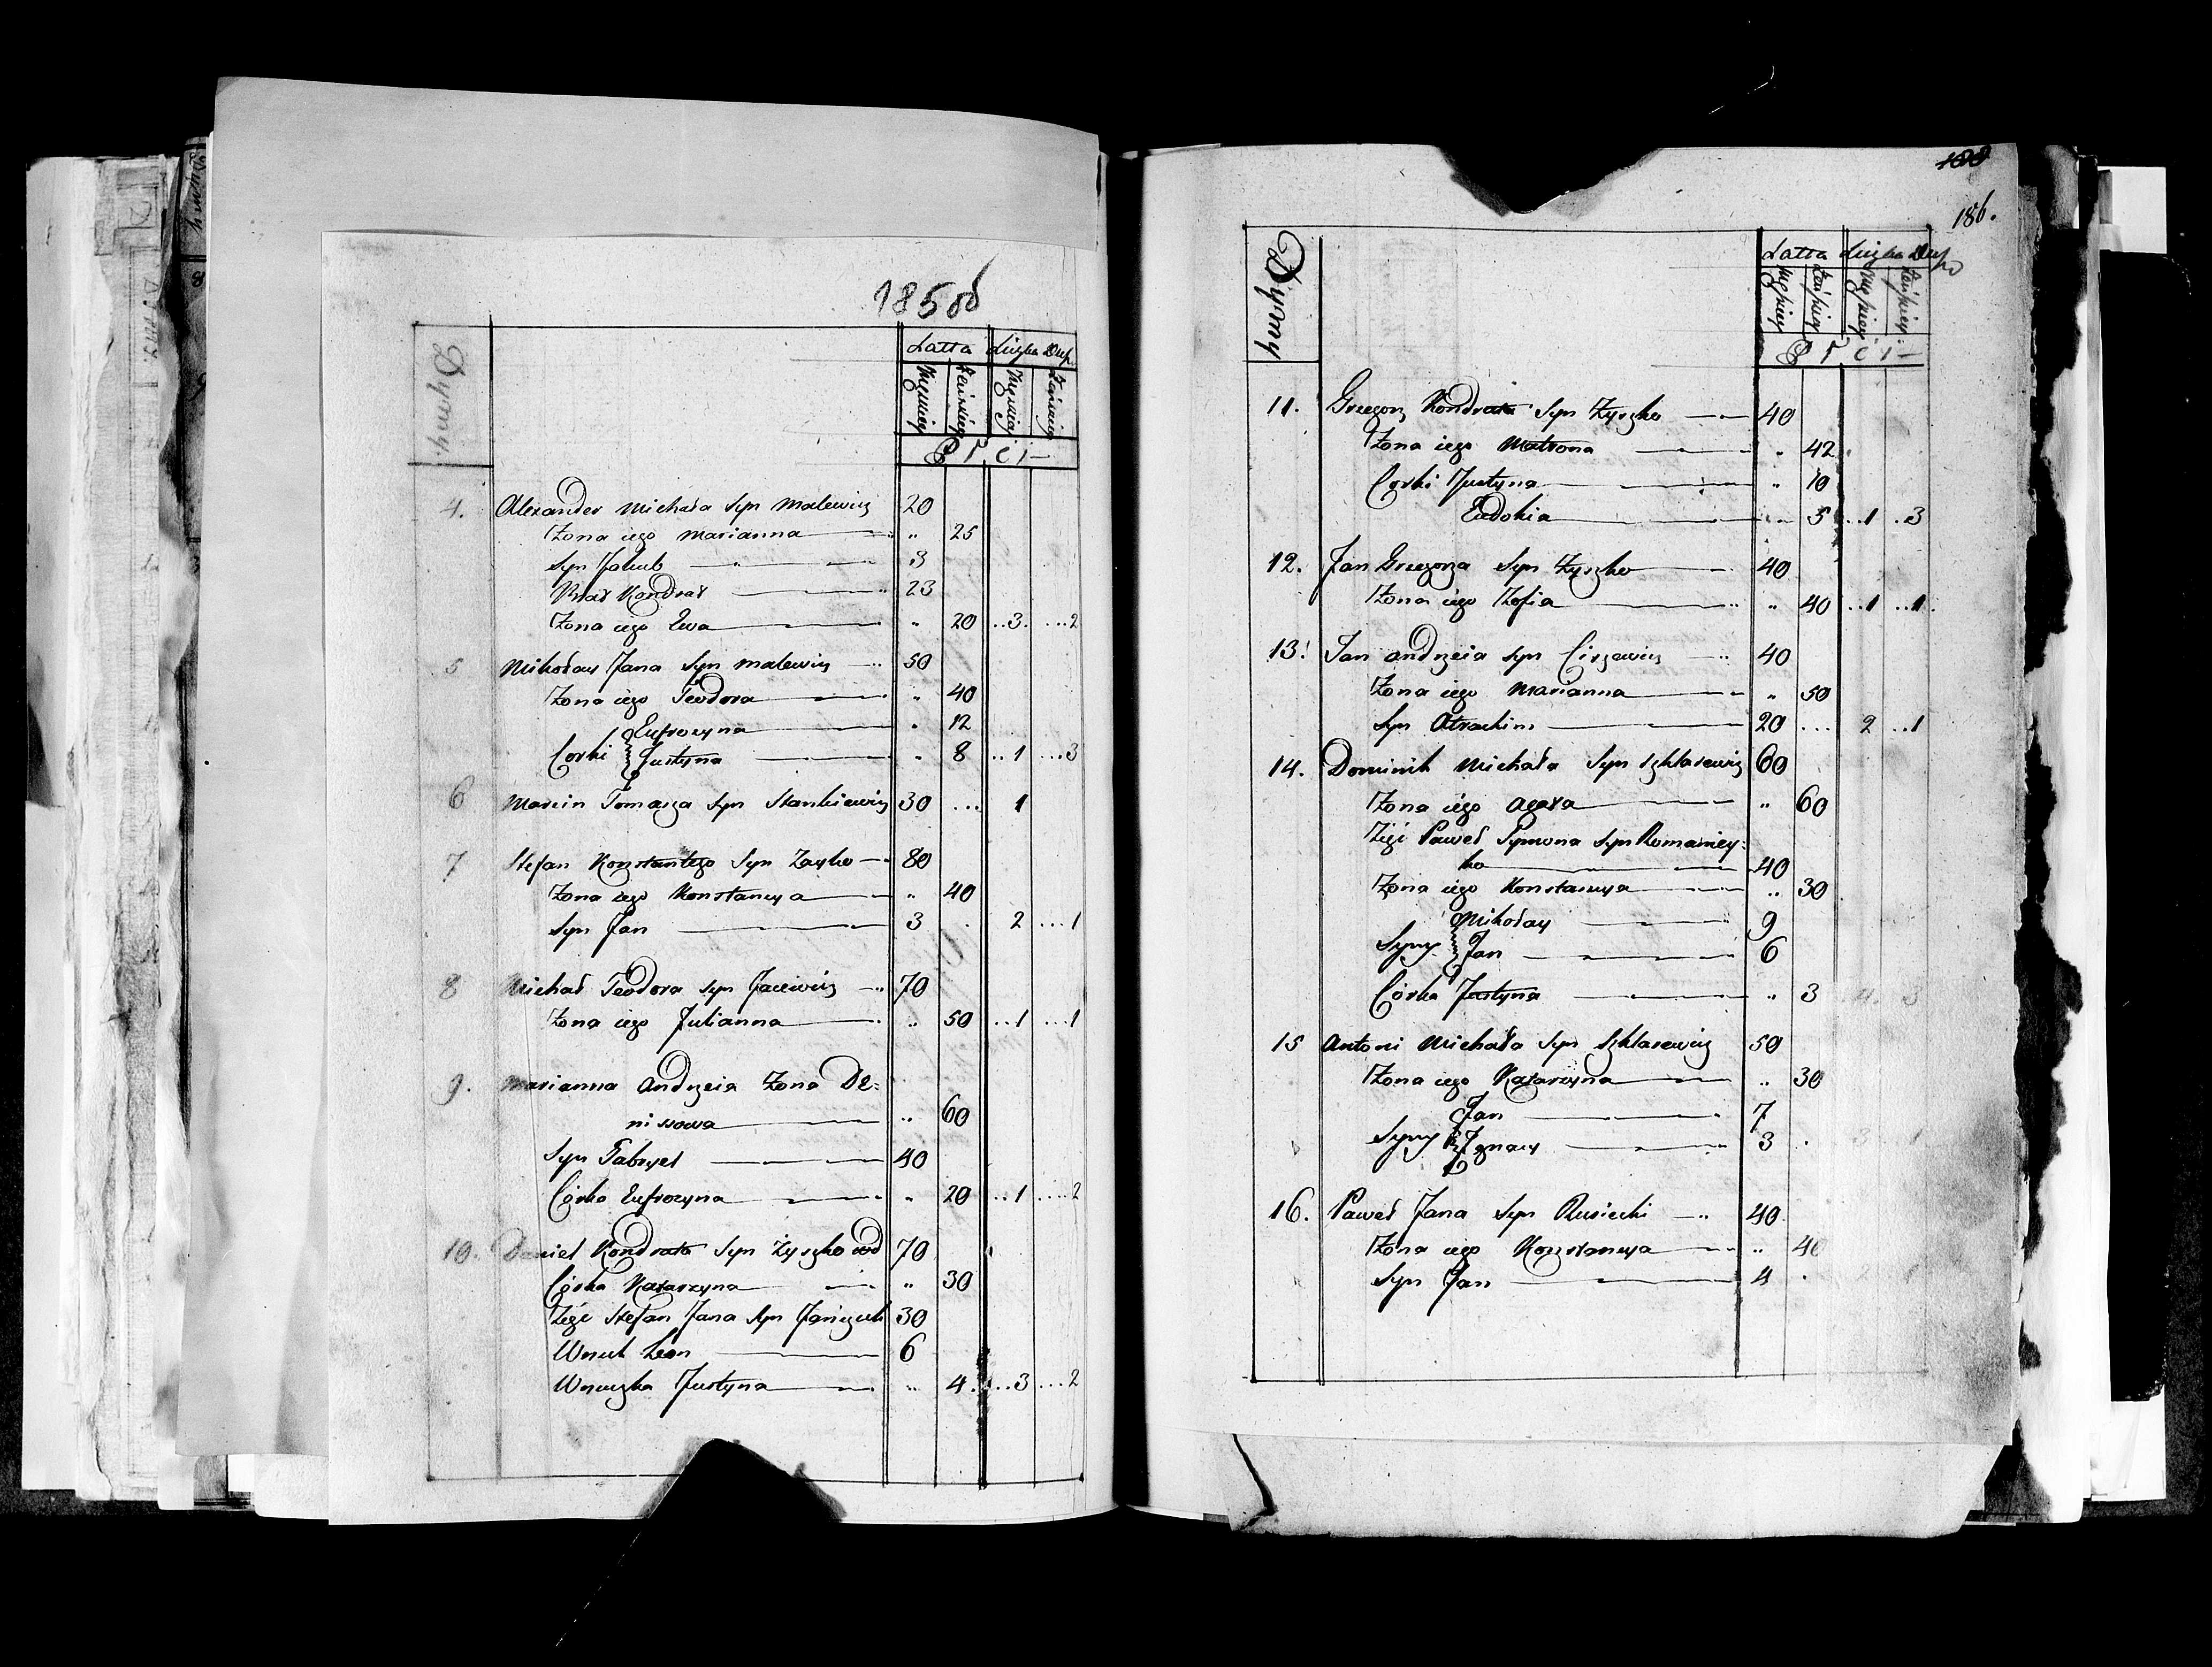 185 об
Dymy
Latta Liczba Dusz
Męzkiey Żeńskiey Męzkiey Żeńskiey
Płci
4. Alexander Michała Syn Malewicz 20
Żona iego Marianna „ 25
Syn Jakub 3
Brat Kondrat 23
Żona iego Ewa „ 20 ..3. ...2
5 Mikołay Jana Syn Malewicz 50
Żona iego Teodora „ 40
Eufrozyna „ 12
Corki Justyna „ 8 ..1 ...3
6 Marcin Tomasza Syn Stankiewicz 30 ... 1
7 Stefan Konstantego Syn Zayko 80
Żona iego Konstancya „ 40
Syn Jan 3 . 2 ...1
8 Michał Teodora Syn Jacewicz 70
Żona iego Julianna „ 50 ..1 ...1
9. Marianna Andrzeia Żona De=
nissowa „ 60
Syn Gabryel 40
Córka Eufrozyna „ 20 ..1 ....2
10. Daniel Kondrata Syn Żyszko wd 70
Córka Katarzyna „ 30
Zięć Stefan Jana Syn Jańczuk 30
Wnuk Leon 6
Wnuczka Justyna „ 4. ..3 ...2
188
186.
Dymy
Latta Liczba Dusz
Męzkiey Żeńskiey Męzkiey Żeńskiey
Płci
11. Grzegorz Kondrata Syn Żyszko 40
Żona iego Matrona „ 42
Corki Justyna „ 10
Eudokia „ 5 ..1 .3
12. Jan Grzegorza Syn Żyszko 40
Żona iego Zofia „ 40 ..1 ..1.
13. Jan Andrzeia Syn Ciszewicz 40
Żona iego Marianna „ 50
Syn Atrachim 20 ... 2 ..1
14. Dominik Michała Syn Szklarewicz 60
Żona iego Agata „ 60
Zięć Paweł Symona Syn Romaniey=
ko 40
Żona iego Konstancya „ 30
Mikołay 9
Syny Jan 6
Córka Justyna „ 3 4. 3
15 Antoni Michała Syn Szklarewicz 50
Żona iego Katarzyna „ 30
Jan 7
Syny Ignacy 3 . 3 1
16. Paweł Jana Syn Rusiecki 40
Żona iego Konstancya „ 40
Syn Jan 4 . 2 1